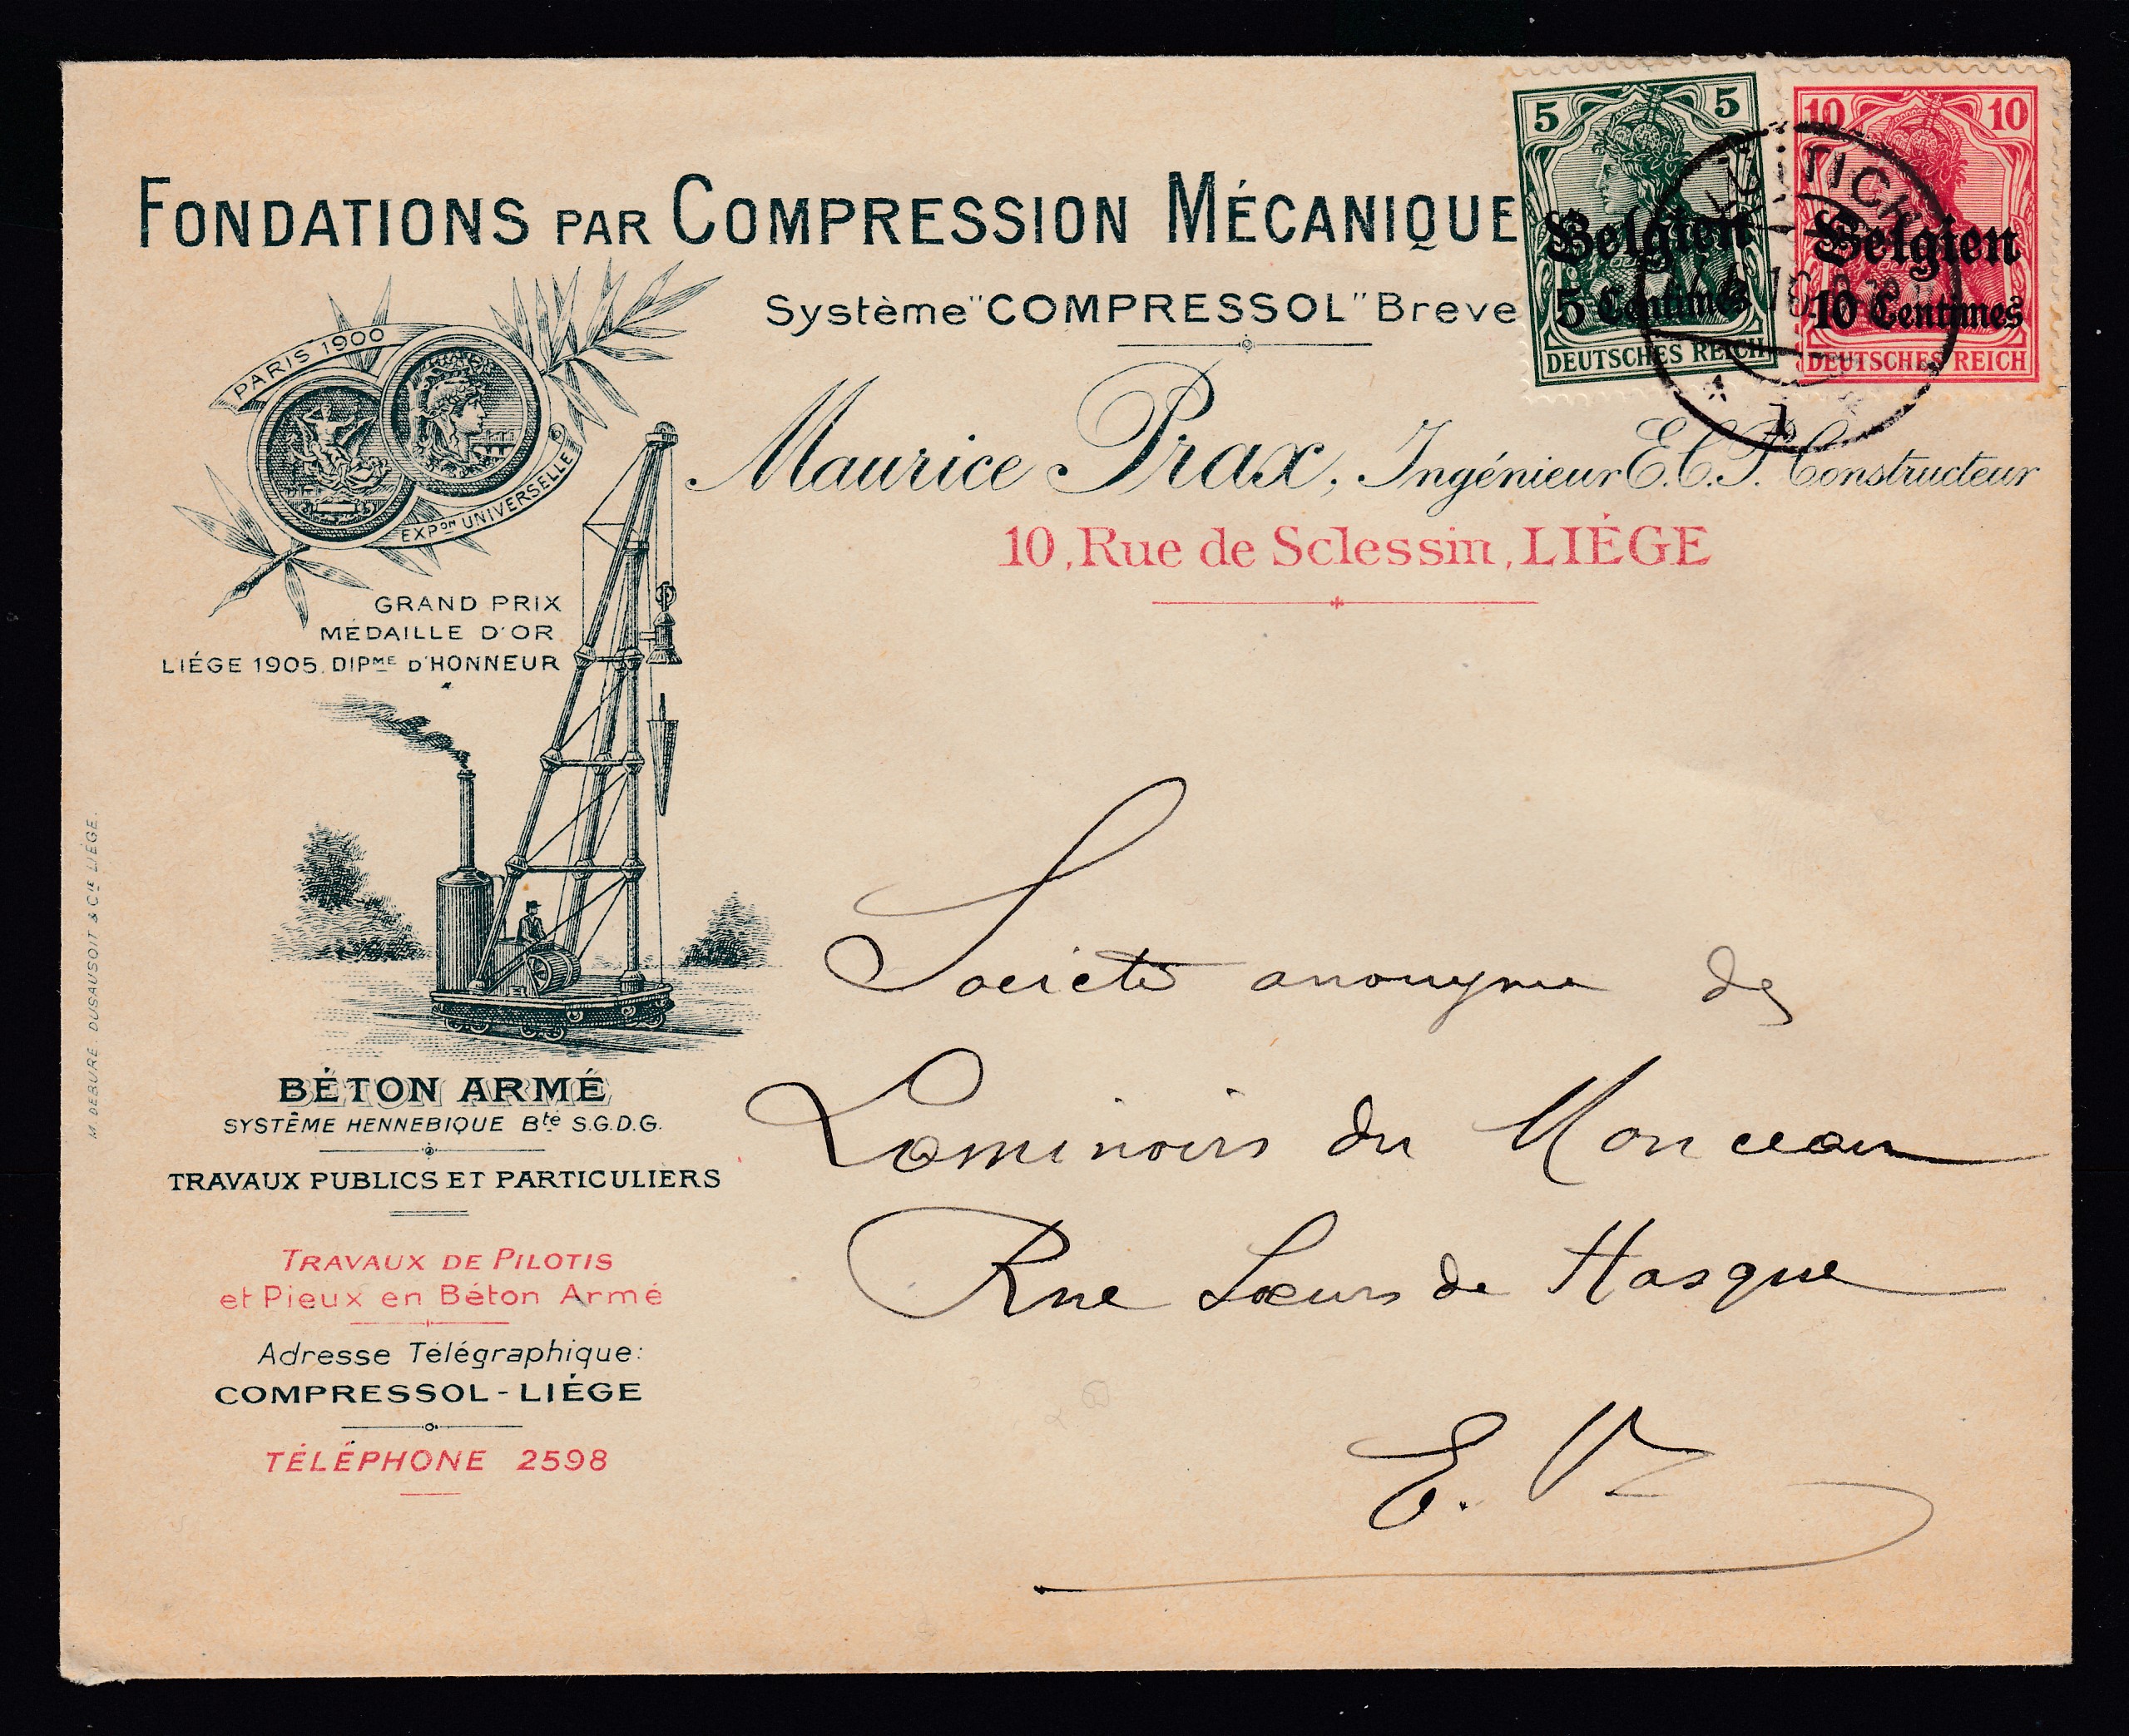 FONDATIONS PAR COMPRESSION MÉCANIQUE
Système "COMPRESSOL" Breve
Maurice Prax, Ingénieur E.C.P. Constructeur
10, Rue de Sclessin, LIÉGE
5 5
Belgien
5 Centimes
DEUTSCHES REICH
10 10
Belgien
10 Centimes
DEUTSCHES REICH
LÜTTICH
1
PARIS 1900
EXPON UNIVERSELLE
GRAND PRIX
MÉDAILLE D'OR
LIÉGE 1905. DIPME D'HONNEUR
BÉTON ARMÉ
SYSTÊME HENNEBIQUE Bté S.G.D.G.
TRAVAUX PUBLICS ET PARTICULIERS
TRAVAUX DE PILOTIS
et Pieux en Béton Armé
Adresse Télégraphique:
COMPRESSOL - LIÉGE
TÉLÉPHONE 2598
M. DEBURE. DUSAUSOIT & CIE LIÉGE.
Societé anonyme des
Laminoirs du Monceau
Rue Sœurs de Hasque
E. V